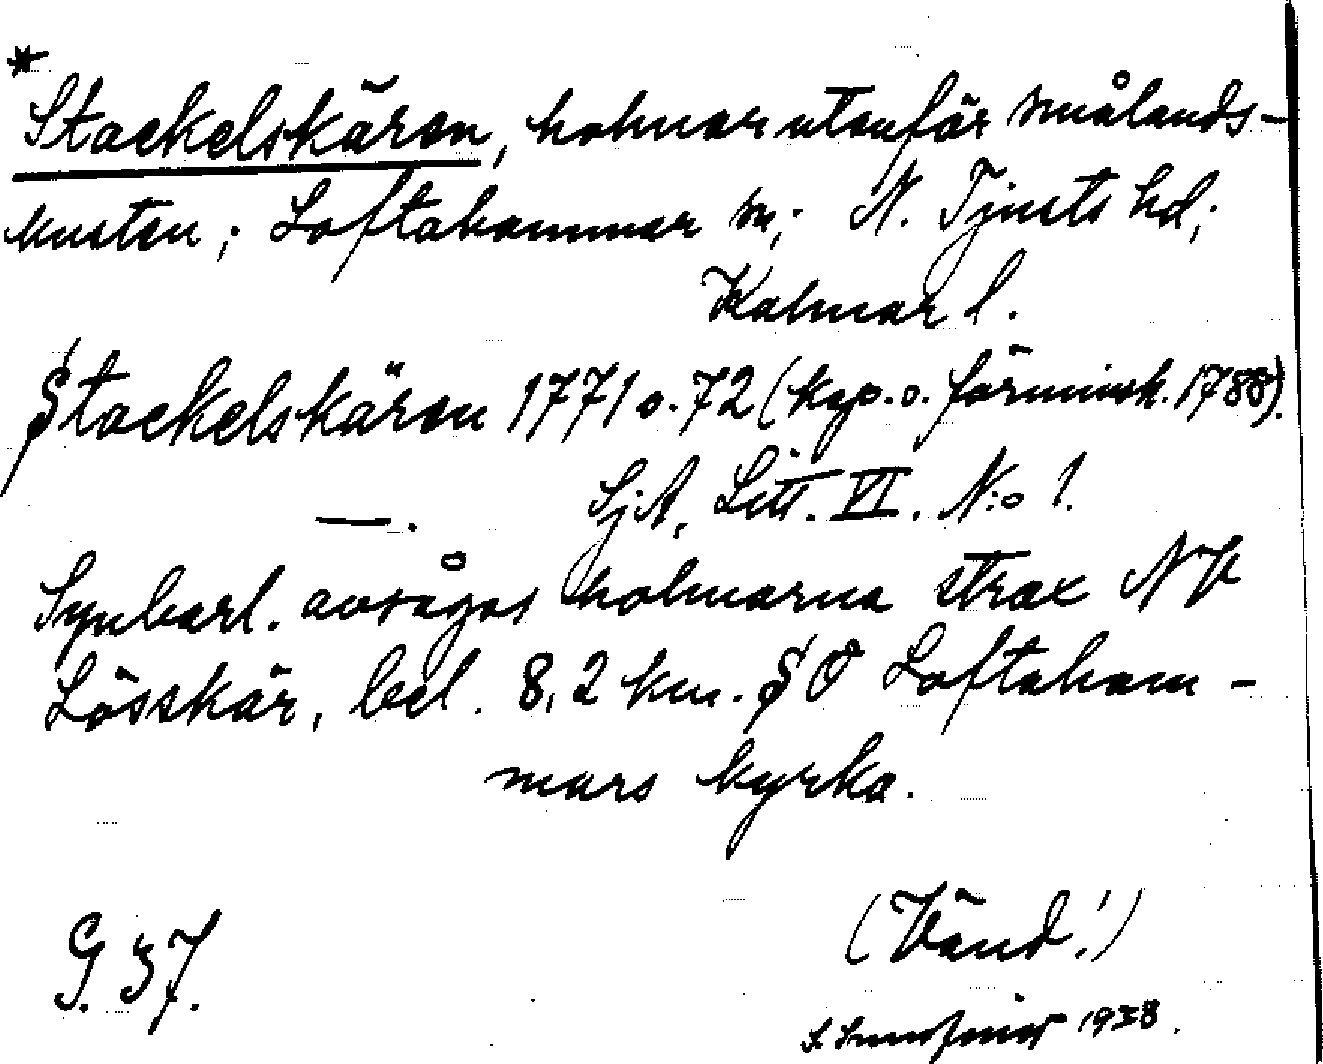 *
Stackelskären, holmar utanför Smålands-
kusten; Loftahammar sn; N. Tjusts hd;
Kalmar l.
Stackelskären 1771 o. 72 (kop. o. förminsk. 1788).
SjA, Litt. VI. N:o 1.
—.
Synbarl. avsågos holmarna strax NV
Lösskär, bel. 8,2 km. SO Loftaham-
mars kyrka.
(Vänd!)
G. 37.
1938.